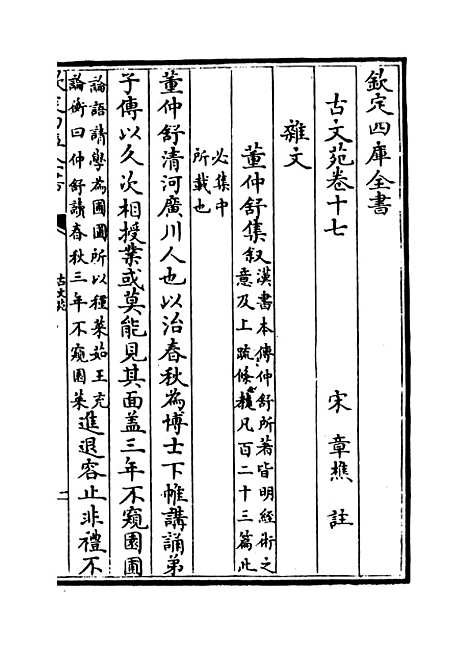 欽定四庫全書
古文苑卷十七
宋 章樵 註
雜文
董仲舒集叙
漢書本傳仲舒所著皆明經術之
意及上疏條教凡百二十三篇此
必集中
所載也
董仲舒清河廣川人也以治春秋為博士下帷講誦弟
子傳以久次相授業或莫能見其面盖三年不窺園圃
論語請學為圃圃所以種菜茹王充
論衡曰仲舒讀春秋三年不窺園菜
進退容止非禮不
古文苑